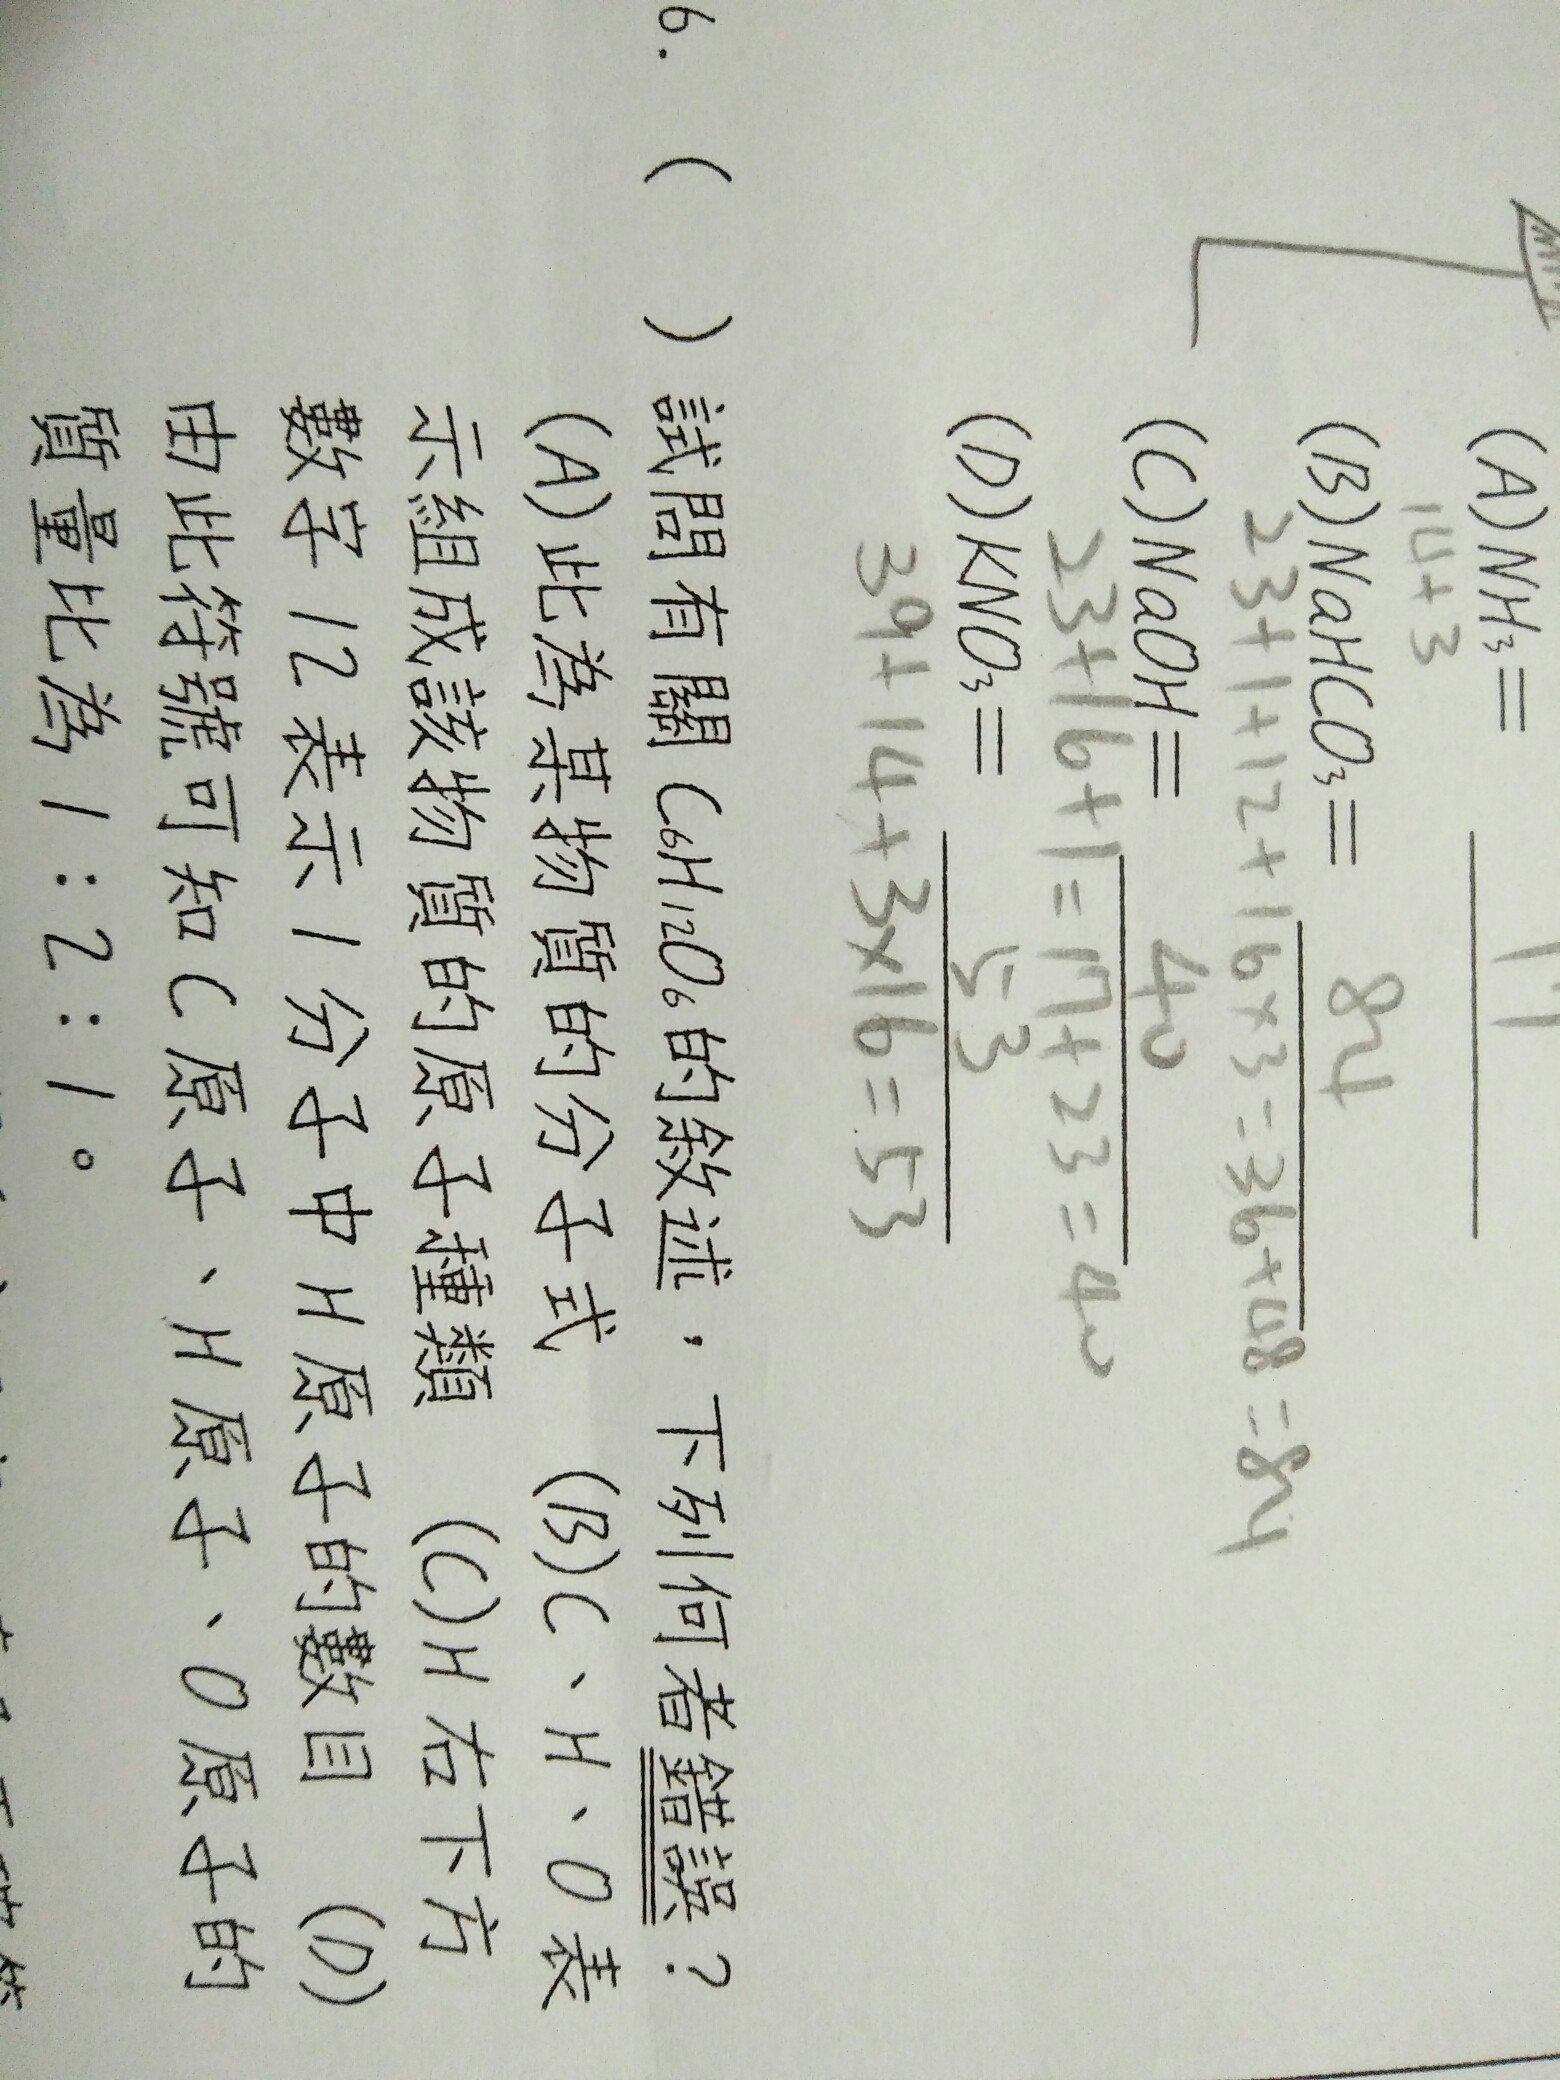 (A)NH₃=
14+3
(B)NaHCO₃= 84
23+1+12+16×3=36+48=84
(C)NaOH= 40
23+16+1=17+23=40
(D)KNO₃= 53
39+14+3×16=53
6. (  )試問有關C₆H₁₂O₆的敘述,下列何者錯誤?
(A)此為某物質的分子式 (B)C、H、O表
示組成該物質的原子種類 (C)H右下方
數字12表示1分子中H原子的數目 (D)
由此符號可知C原子、H原子、O原子的
質量比為1:2:1。